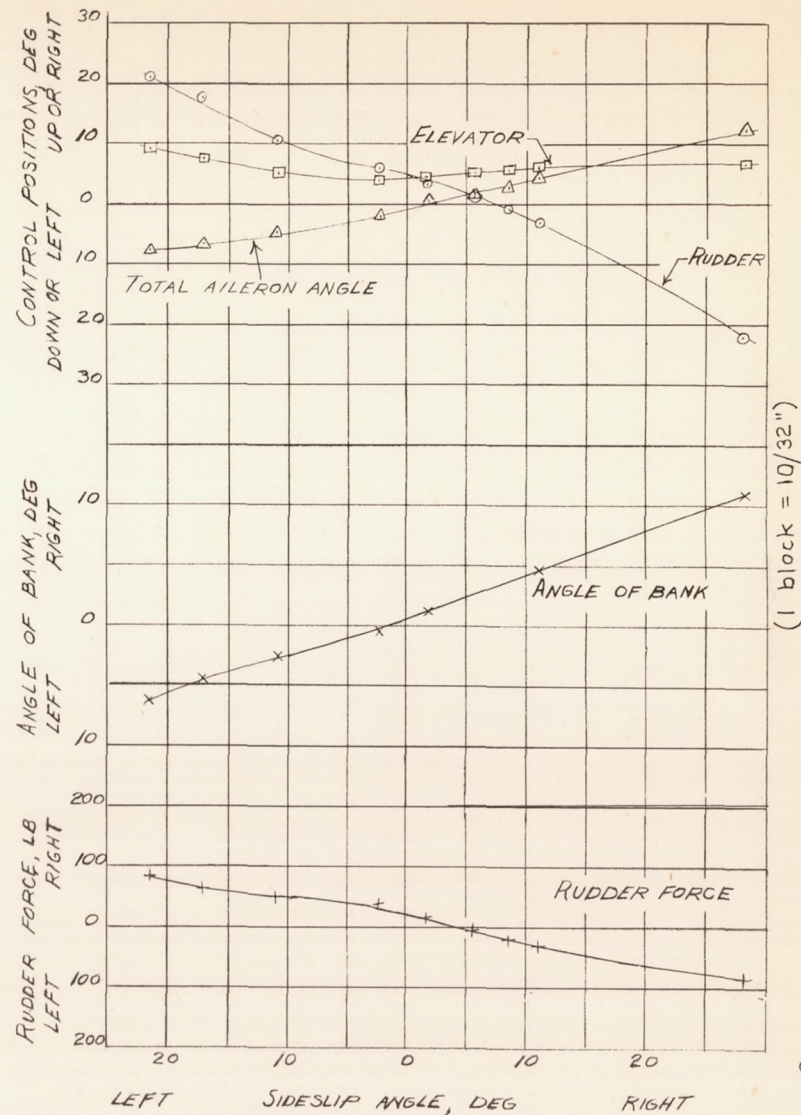 CONTROL POSITIONS, DEG
DOWN OR LEFT UP OR RIGHT
30
20
10
0
10
20
30
ELEVATOR
RUDDER
TOTAL AILERON ANGLE
ANGLE OF BANK, DEG
LEFT RIGHT
10
0
10
ANGLE OF BANK
(1 block = 10/32")
RUDDER FORCE, LB
LEFT RIGHT
200
100
0
100
200
RUDDER FORCE
20 10 0 10 20
LEFT SIDESLIP ANGLE, DEG RIGHT